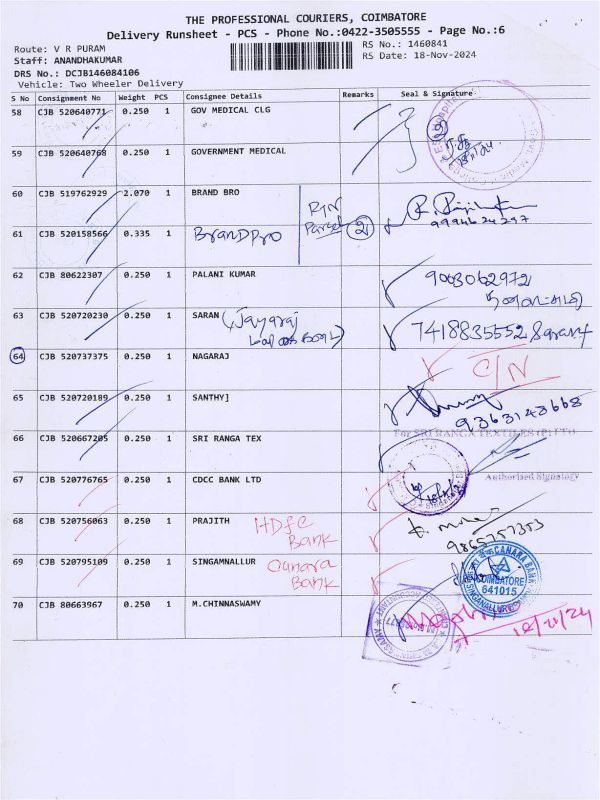 THE PROFESSIONAL COURIERS, COIMBATORE
Delivery Runsheet - PCS - Phone No.:0422-3505555 - Page No.:6
Route: V R PURAM
Staff: ANANDHAKUMAR
DRS No.: DCJB146084106
Vehicle: Two Wheeler Delivery
RS No.: 1460841
RS Date: 18-Nov-2024
S No Consignment No Weight PCS Consignee Details Remarks Seal & Signature
58 CJB 520640771 0.250 1 GOV MEDICAL CLG
59 CJB 520640768 0.250 1 GOVERNMENT MEDICAL
60 CJB 519762929 2.070 1 BRAND BRO RTN
Parcel 2
9994624297
61 CJB 520158566 0.335 1 BranDPro
62 CJB 80622307 0.250 1 PALANI KUMAR 9003062972
63 CJB 520720230 0.250 1 SARAN (Jayaraj 7418835552 Saran
64 CJB 520737375 0.250 1 NAGARAJ C/N
65 CJB 520720189 0.250 1 SANTHY] 9363143668
66 CJB 520667205 0.250 1 SRI RANGA TEX For SRI RANGA TEXTILES (P) LTD
Authorised Signatory
67 CJB 520776765 0.250 1 CDCC BANK LTD
68 CJB 520756063 0.250 1 PRAJITH HDFC
Bank
69 CJB 520795109 0.250 1 SINGAMNALLUR Canara
Bank
CANARA BANK
COIMBATORE
641015
SINGANALLUR
70 CJB 80663967 0.250 1 M.CHINNASWAMY